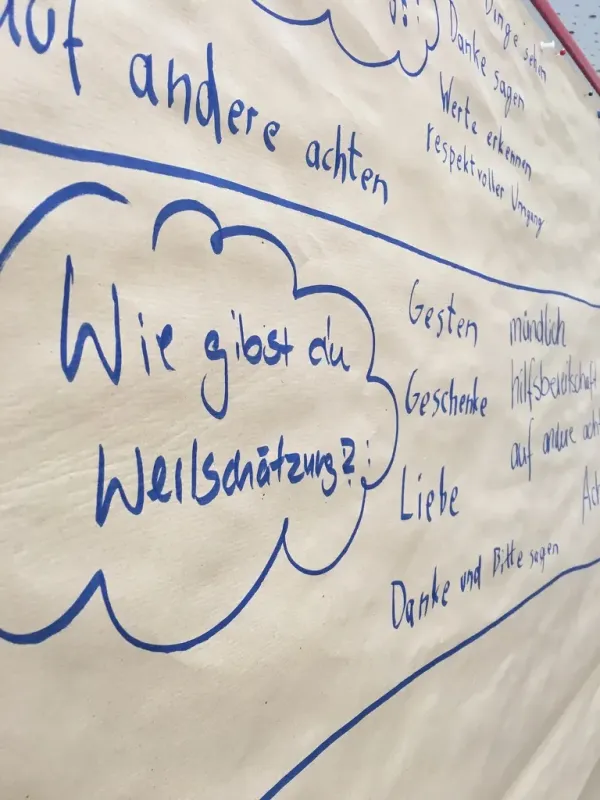 Dinge sehen
Danke sagen
Werte erkennen
respektvoller Umgang
auf andere achten
Wie gibst du
Wertschätzung?
Gesten
Geschenke
Liebe
Danke und Bitte sagen
mündlich
hilfsbereitschaft
auf andere acht
Ach